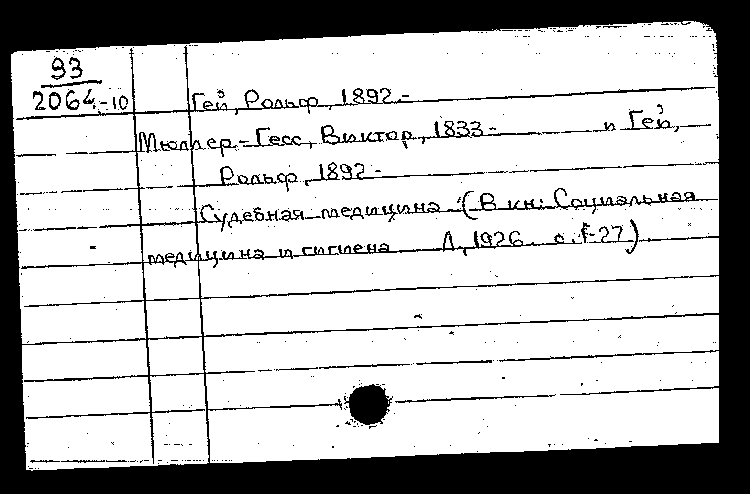 93
2064-10
Гей, Рольф, 1892-
Мюллер-Гесс, Виктор, 1833- и Гей,
Рольф, 1892-
Судебная медицина (В кн: Социальная
медицина и гигиена Л, 1926. с. 1-27).